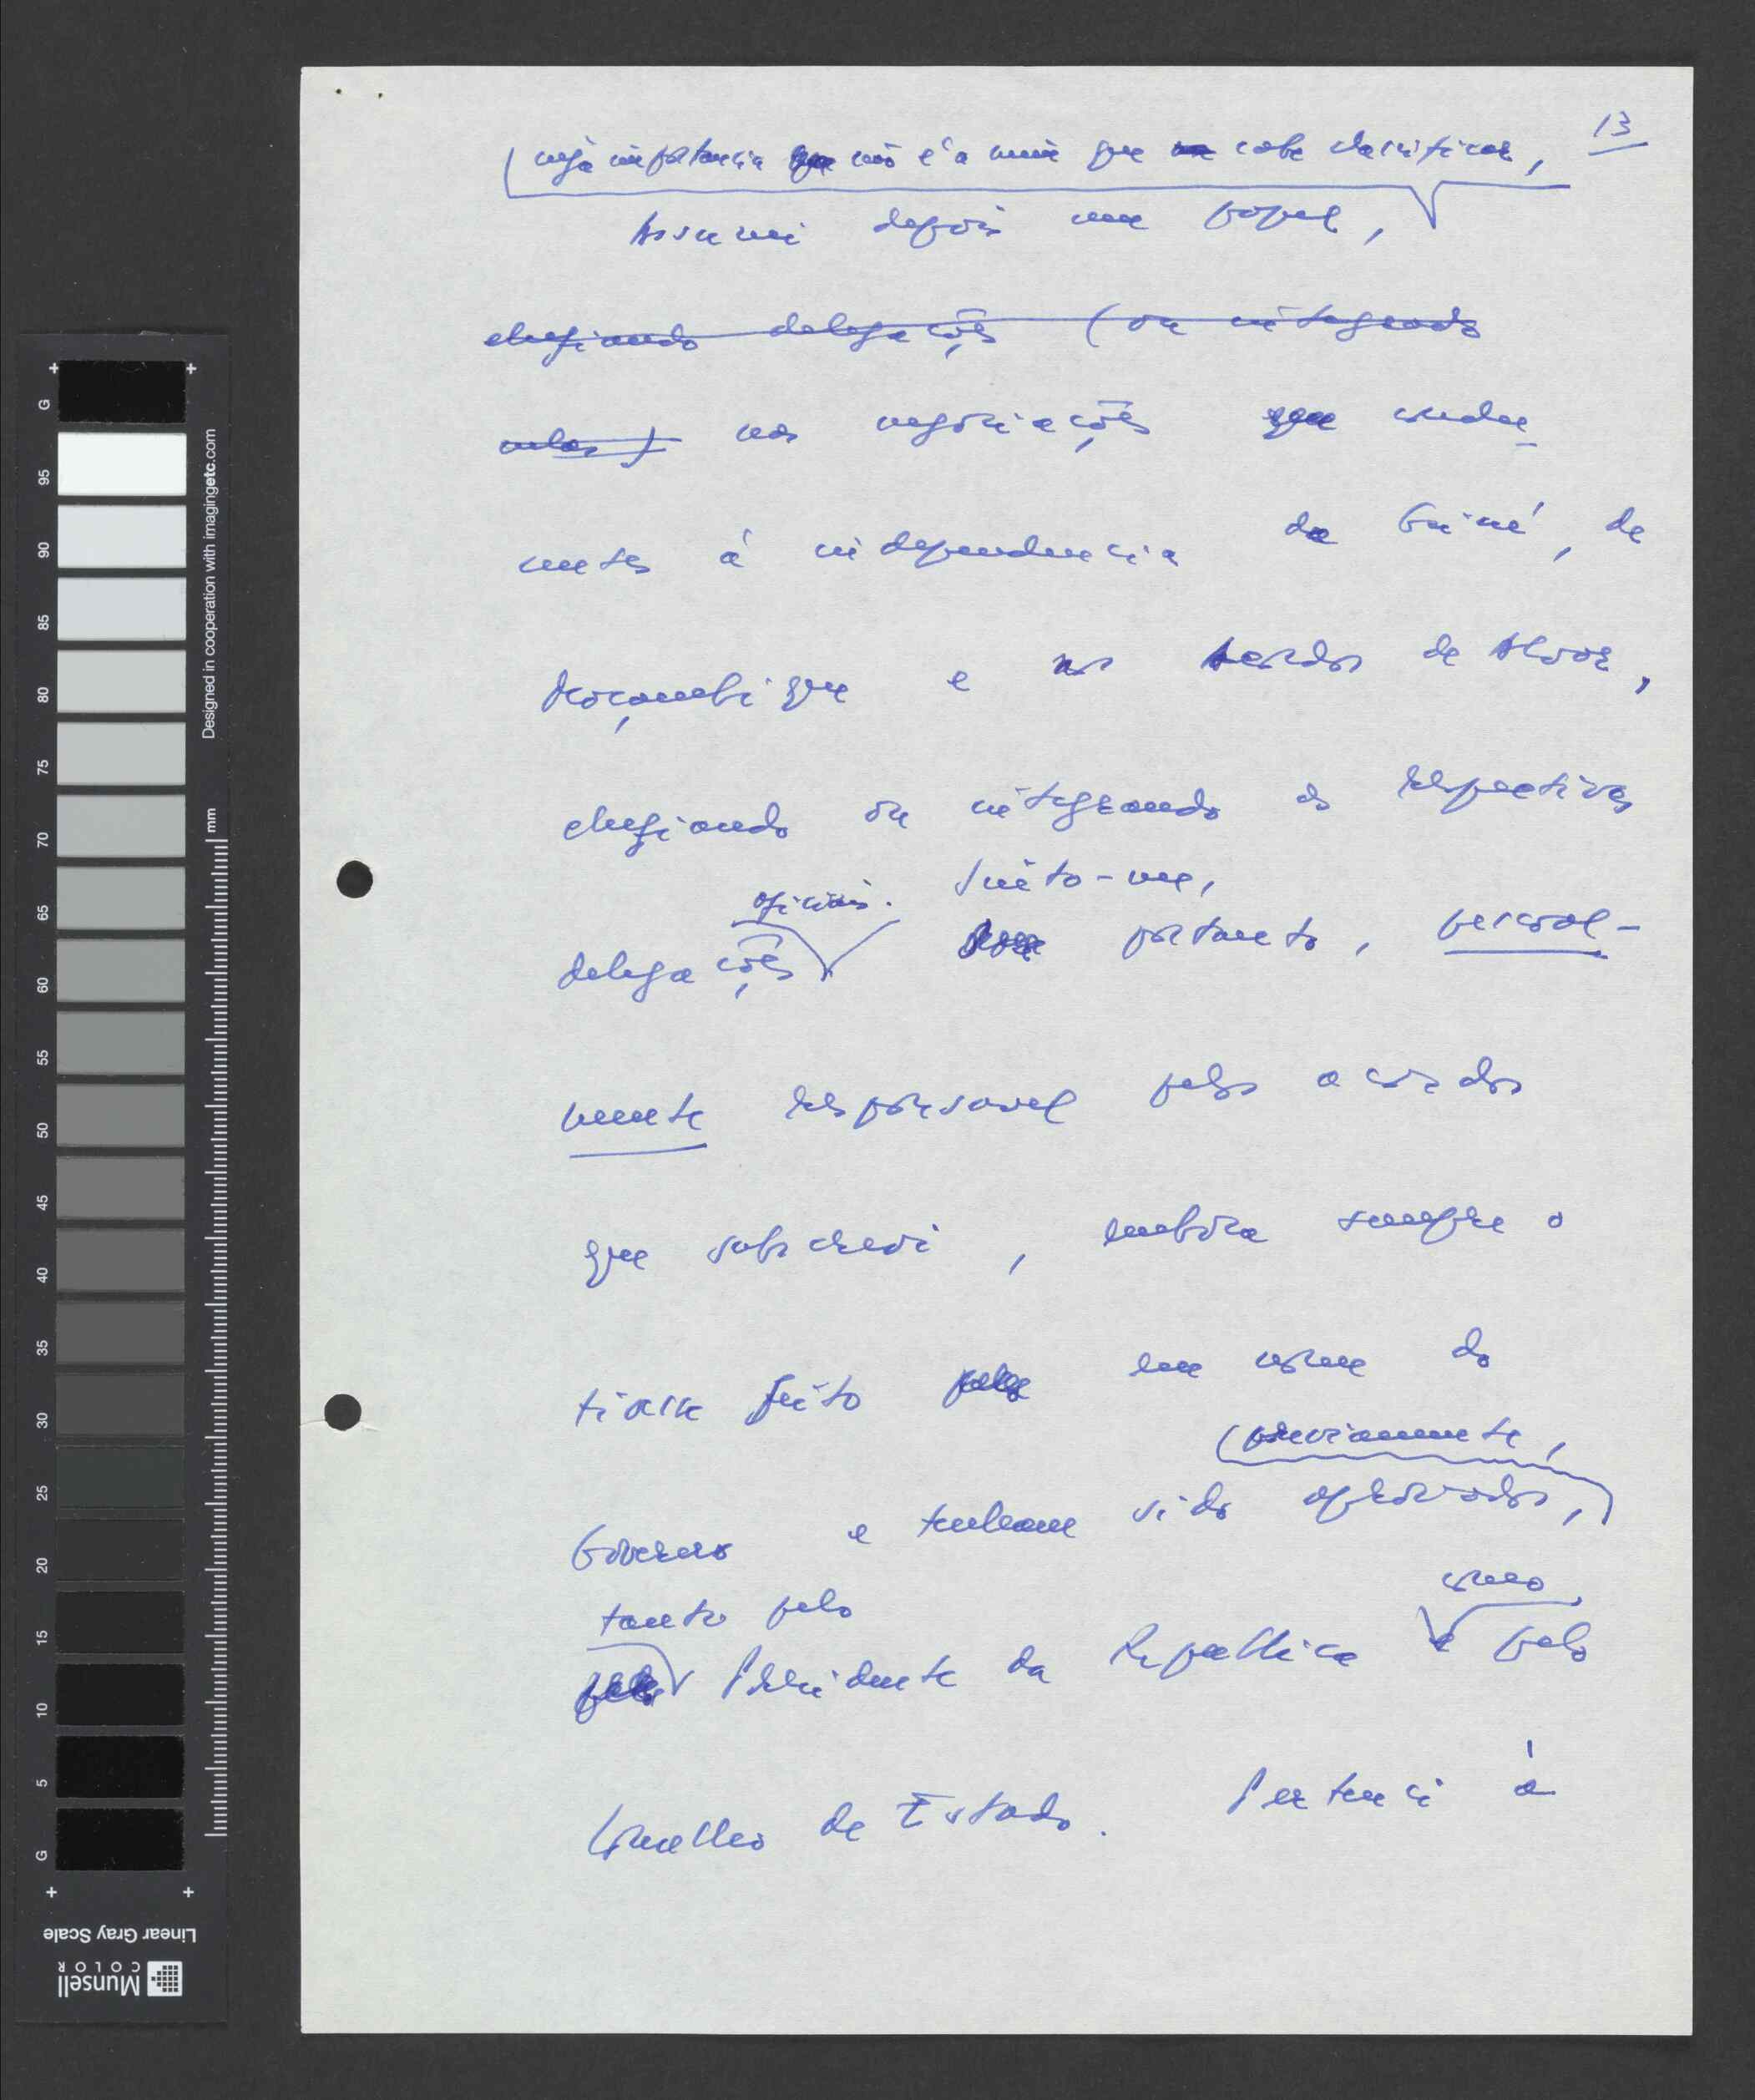 13
cuja importancia que não é a mim que me cabe classificar,
Assumi depois um papel,
chefiando delegações (ou integrado
nelas) nas negociações que condu
centes à independencia da Guiné, de
Moçambique e nos Acordos de Alvor,
chefiando ou integrando as respectivas
oficiais. Sinto-me,
delegações portanto, pessoal-
mente responsavel pelos acordos
que subscrevi, embora sempre o
tivesse feito em nome do
previamente,
Governo e tenham sido aprovados,
tanto pelo como
Presidente da Republica e pelo
Conselho de Estado. Pertenci à
G 95 90 85 80 75 70 65 60 55 50 45 40 35 30 25 20 15 10 5 G
Designed in cooperation with imagingetc.com
mm
Linear Gray Scale
Munsell
COLOR